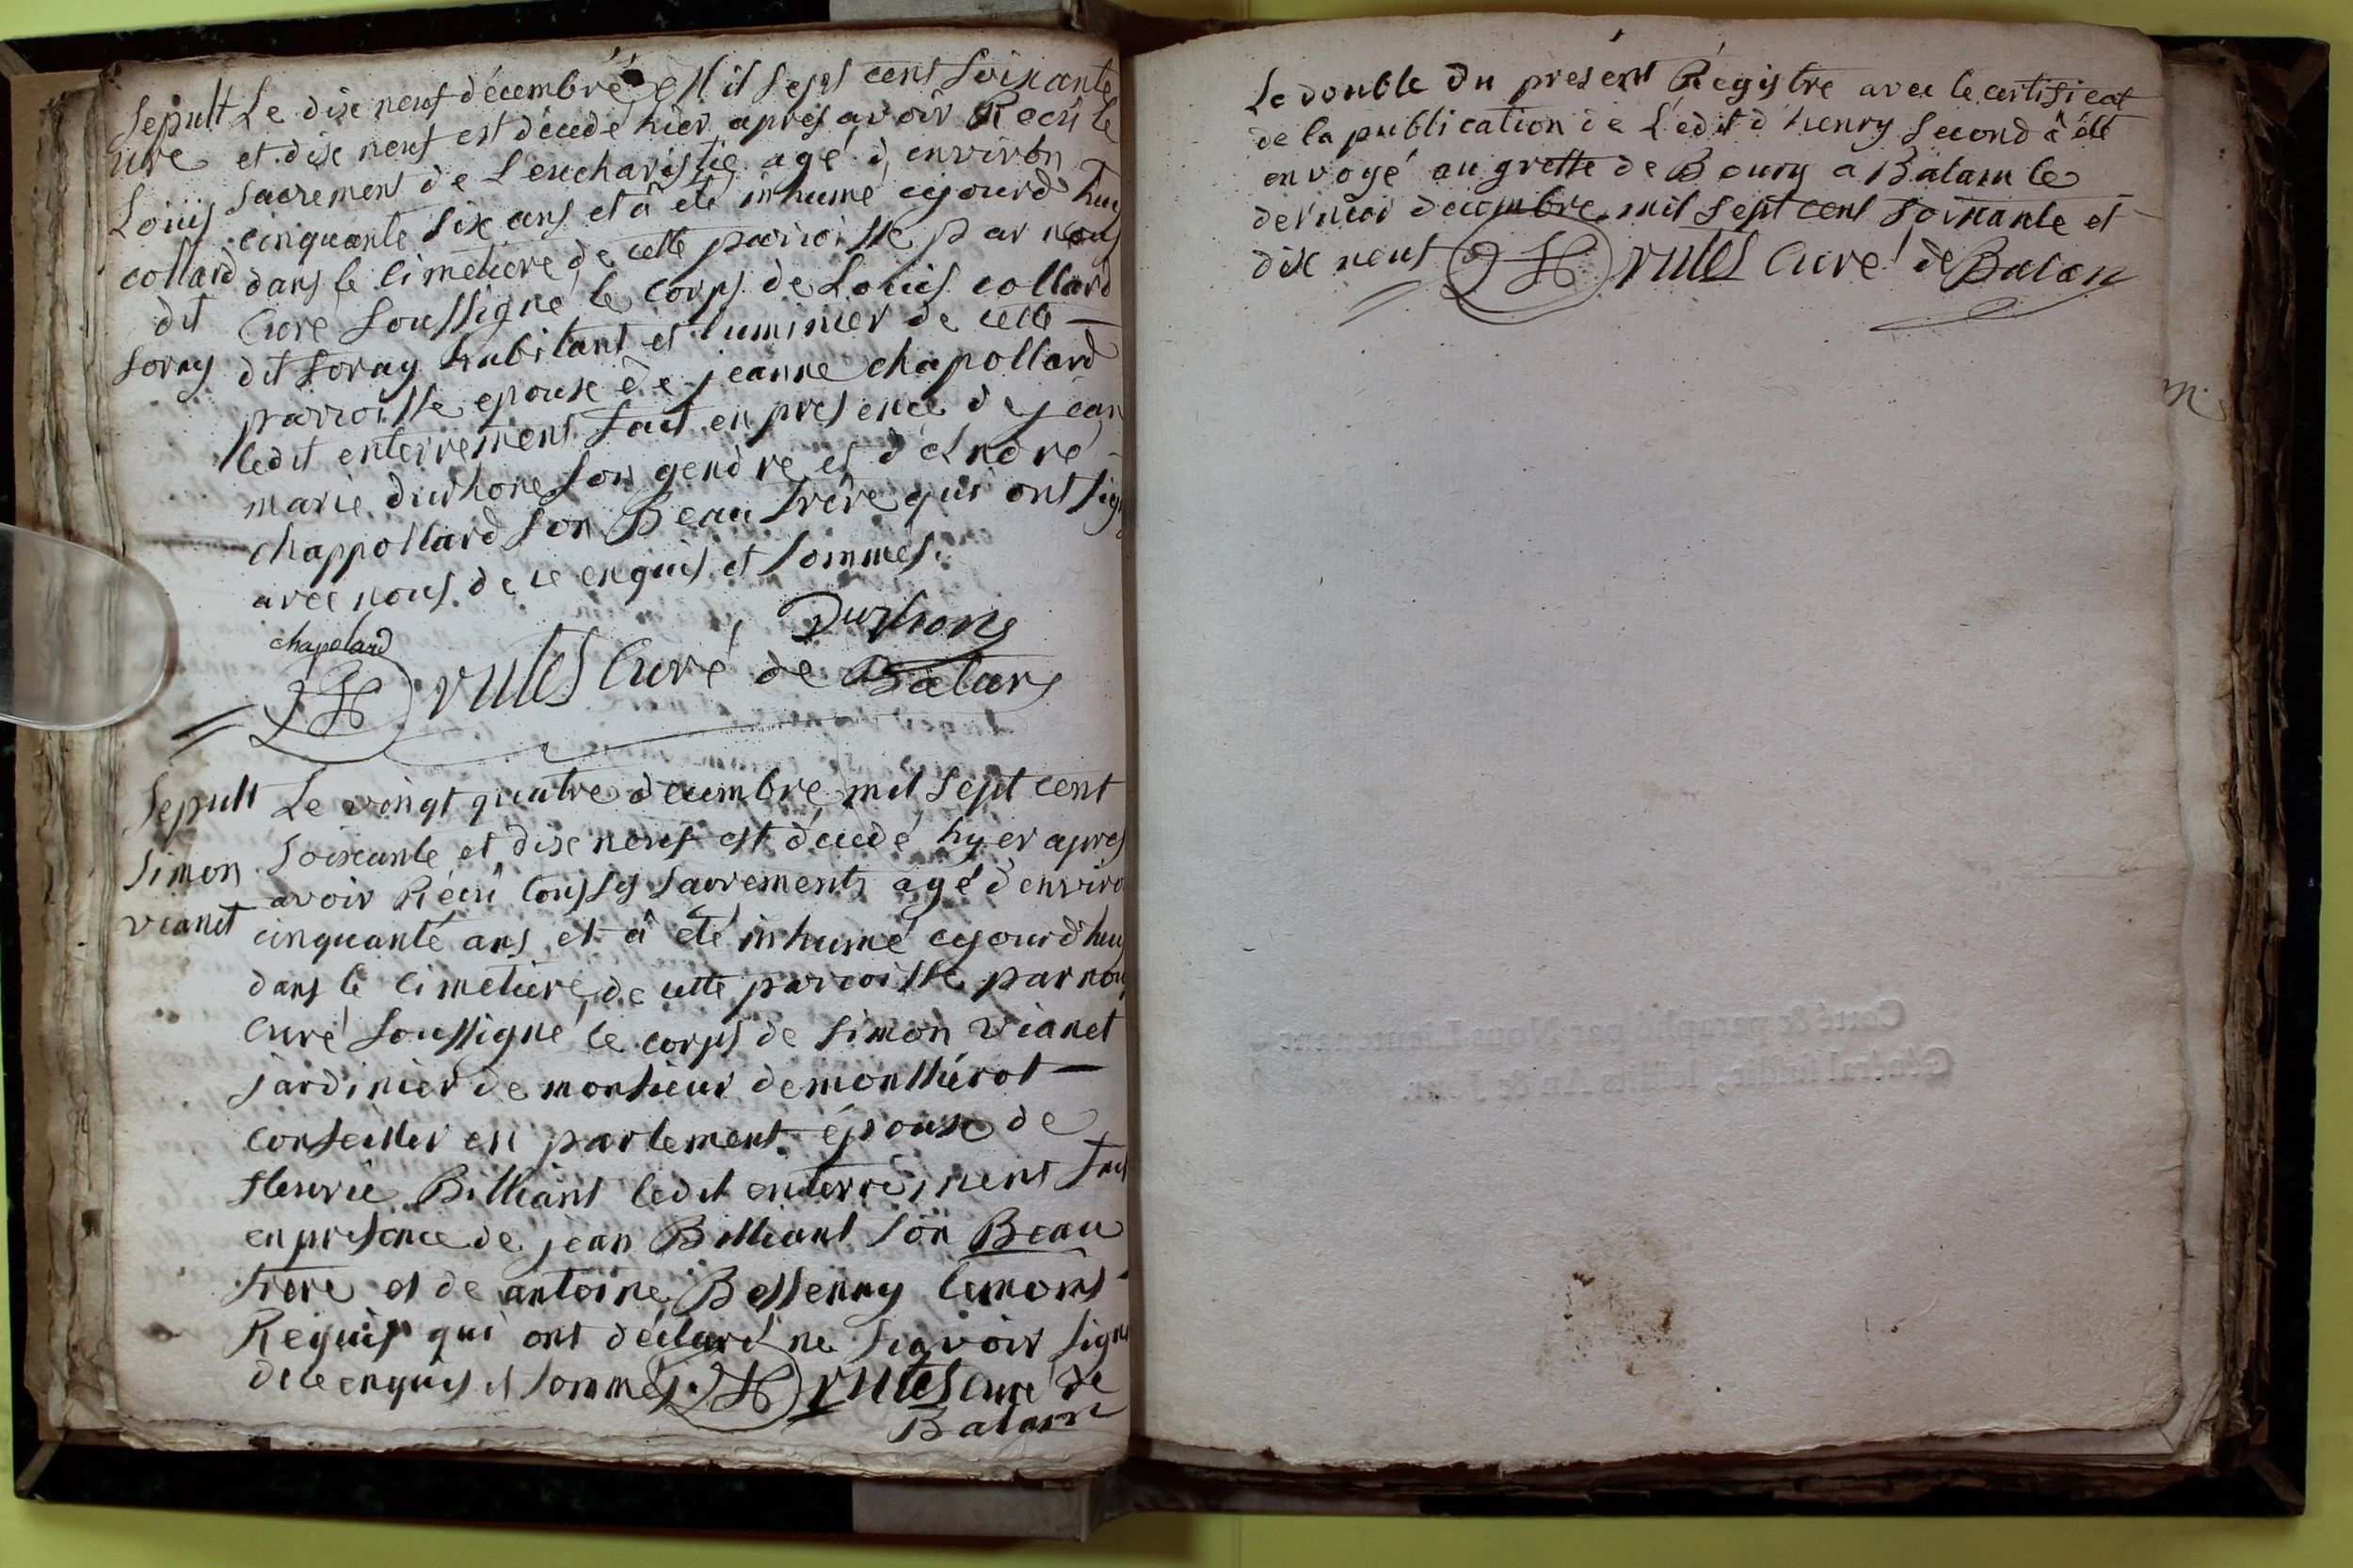 Sepult
ure
Louis
collard
dit
Soray
Le dix neuf décembre Mil sept cent soixante
et dix neuf est décédé hier après avoir Reçu le
sacrement de L'eucharistie agé d'environ
cinquante six ans et â été inhumé cejourd huy
dans le Cimetiere de cette parroisse par nous
Curé soussigné le corps de Louis collard
dit Soray habitant et luminier de cette
parroisse epoux de jeanne chapollard
ledit enterrement fait en presence de jean
marie durhone son gendre et d'André
chappollard son Beau frère qui ont sig
avec nous de ce enquis et sommés.
Durhone
chapolard
rutes Curé de Balan
Sepult
Simon
vianet
Le vingt quatre décembre mil sept cent
soixante et dix neuf est décédé hyer apres
avoir Reçu tous ses sacrements agé d'enviro
cinquante ans et â été inhumé cejourd'huy
dans le cimetiere de cette parroisse par nous
Curé soussigné le corps de Simon vianet
jardinier de monsieur de montherot
conseiller en parlement époux de
fleurie Billiant ledit enterrement fait
en presence de jean Billiant son Beau
frere et de antoine Bessenay temoins
Requis qui ont déclaré ne sçavoir signe
de ce enquis et sommés. rutes curé de
Balan
Le double du present Régistre avec le certificat
de la publication de L'edit d'henry second â été
envoyé au greffe de Bourg a Balan le
dernier decembre mil sept cent soixante et
dix neuf rutes Curé de Balan